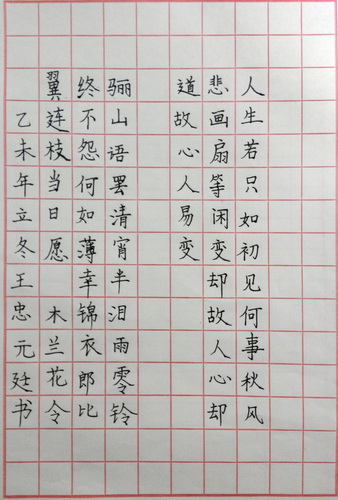 人生若只如初见何事秋风
悲画扇等闲变却故人心却
道故心人易变
骊山语罢清宵半泪雨零铃
终不怨何如薄幸锦衣郎比
翼连枝当日愿 木兰花令
乙未年立冬王忠元廷书